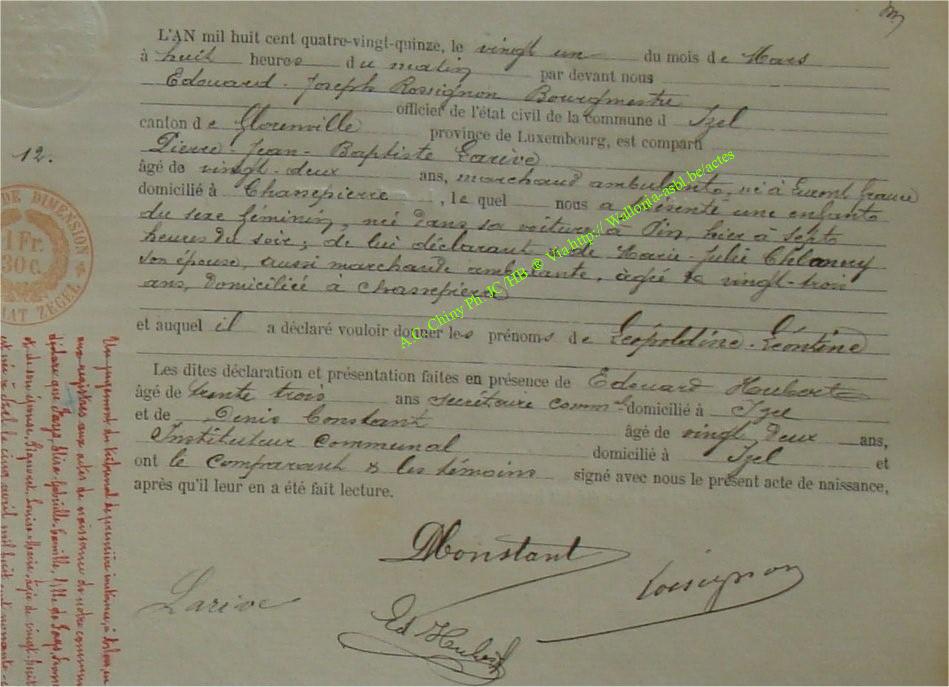 L'AN mil huit cent quatre-vingt-quinze, le vingt un du mois de Mars
à huit heures du matin par devant nous
Edouard-Joseph Rossignon Bourgmestre
officier de l'état civil de la commune d Izel
canton de Florenville province de Luxembourg, est comparu
Pierre-Jean-Baptiste Larive
âgé de vingt-deux ans, marchand ambulante, né à Euront France
domicilié à Chassepierre, lequel nous a présenté une enfante
du sexe féminin, née dans sa voiture à Pin, hier à sept
heures du soir; de lui déclarant & de Marie-Julie
son épouse, aussi marchande ambulante, agée de vingt-trois
ans, domiciliée à Chassepierre
et auquel il a déclaré vouloir donner les prénoms de Léopoldine-Léontine
Les dites déclaration et présentation faites en présence de Edouard Hubert
âgé de trente trois ans secrétaire comm^al domicilié à Izel
et de Denis Constant âgé de vingt deux ans,
Instituteur Communal domicilié à Izel et
ont le comparant & les témoins signé avec nous le présent acte de naissance,
après qu'il leur en a été fait lecture.
12.
DE DIMENSION
1 Fr.
30 C.
AT ZEGEL
DConstant
Larive
Ed Hubert
Rossignon
A.C. Chiny Ph. JC /HB ® Via http:// Wallonia-asbl.be/actes
Un jugement du tribunal de première instance, à Arlon,
aux registres aux actes de naissance de notre commune